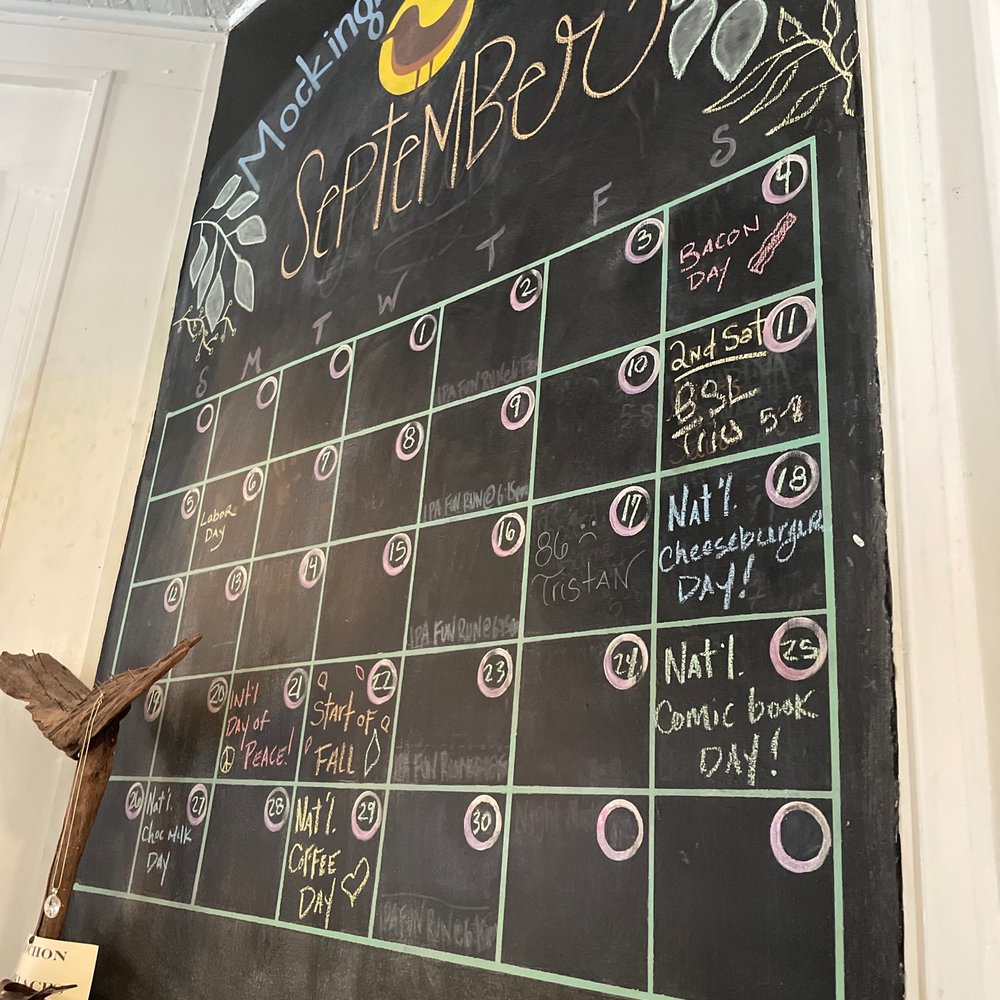 Mocking
SepteMBer
S M T W T F S
1 2 3 4
IPA FUN RUN @ 6:15
BACON
DAY
5 6 7 8 9 10 11
Labor
DAY
IPA FUN RUN @ 6:15pm
2nd Sat
BSL
5-8
12 13 14 15 16 17 18
IPA FUN RUN @ 6:15pm
86 :(
TristAN
Nat'l.
Cheeseburger
DAY!
19 20 21 22 23 24 25
Int'l
Day of
PEACE!
Start of
FALL
IPA FUN RUN
Nat'l.
Comic book
DAY!
26 27 28 29 30
Nat'l.
Choc Milk
DAY
Nat'l.
COFFEE
DAY
IPA FUN RUN @ 6:15
CHON